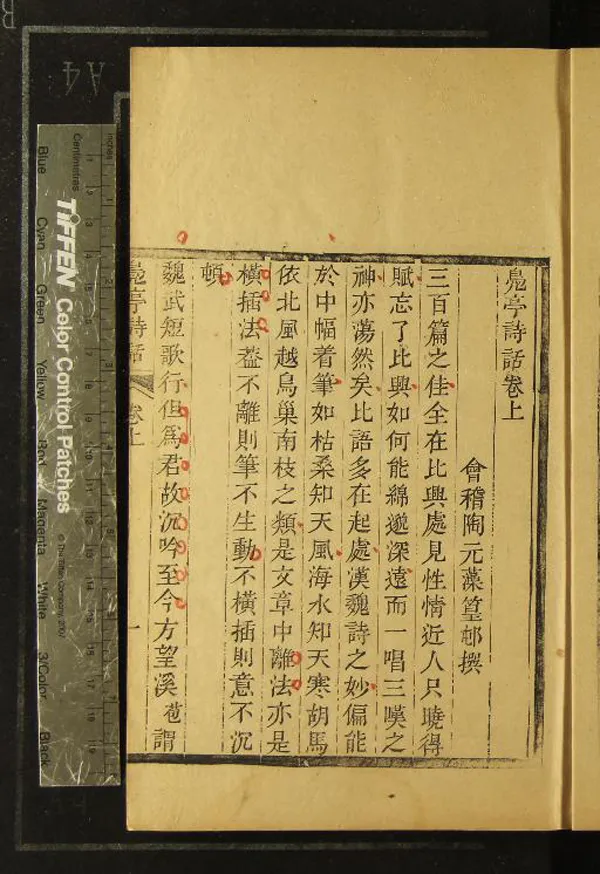 鳧亭詩話卷上
會稽陶元藻篁邨撰
三百篇之佳全在比興處見性情近人只曉得
賦忘了比興如何能綿邈深遠而一唱三嘆之
神亦蕩然矣比語多在起處漢魏詩之妙偏能
於中幅着筆如枯桑知天風海水知天寒胡馬
依北風越鳥巢南枝之類是文章中離法亦是
橫插法葢不離則筆不生動不橫插則意不沉
頓
魏武短歌行但爲君故沉吟至今方望溪苞謂
鳧亭詩話 卷上 一
Inches
Centimetres
TIFFEN Color Control Patches
© The Tiffen Company, 2007
Blue
Cyan
Green
Yellow
Red
Magenta
White
3/Color
Black
A4